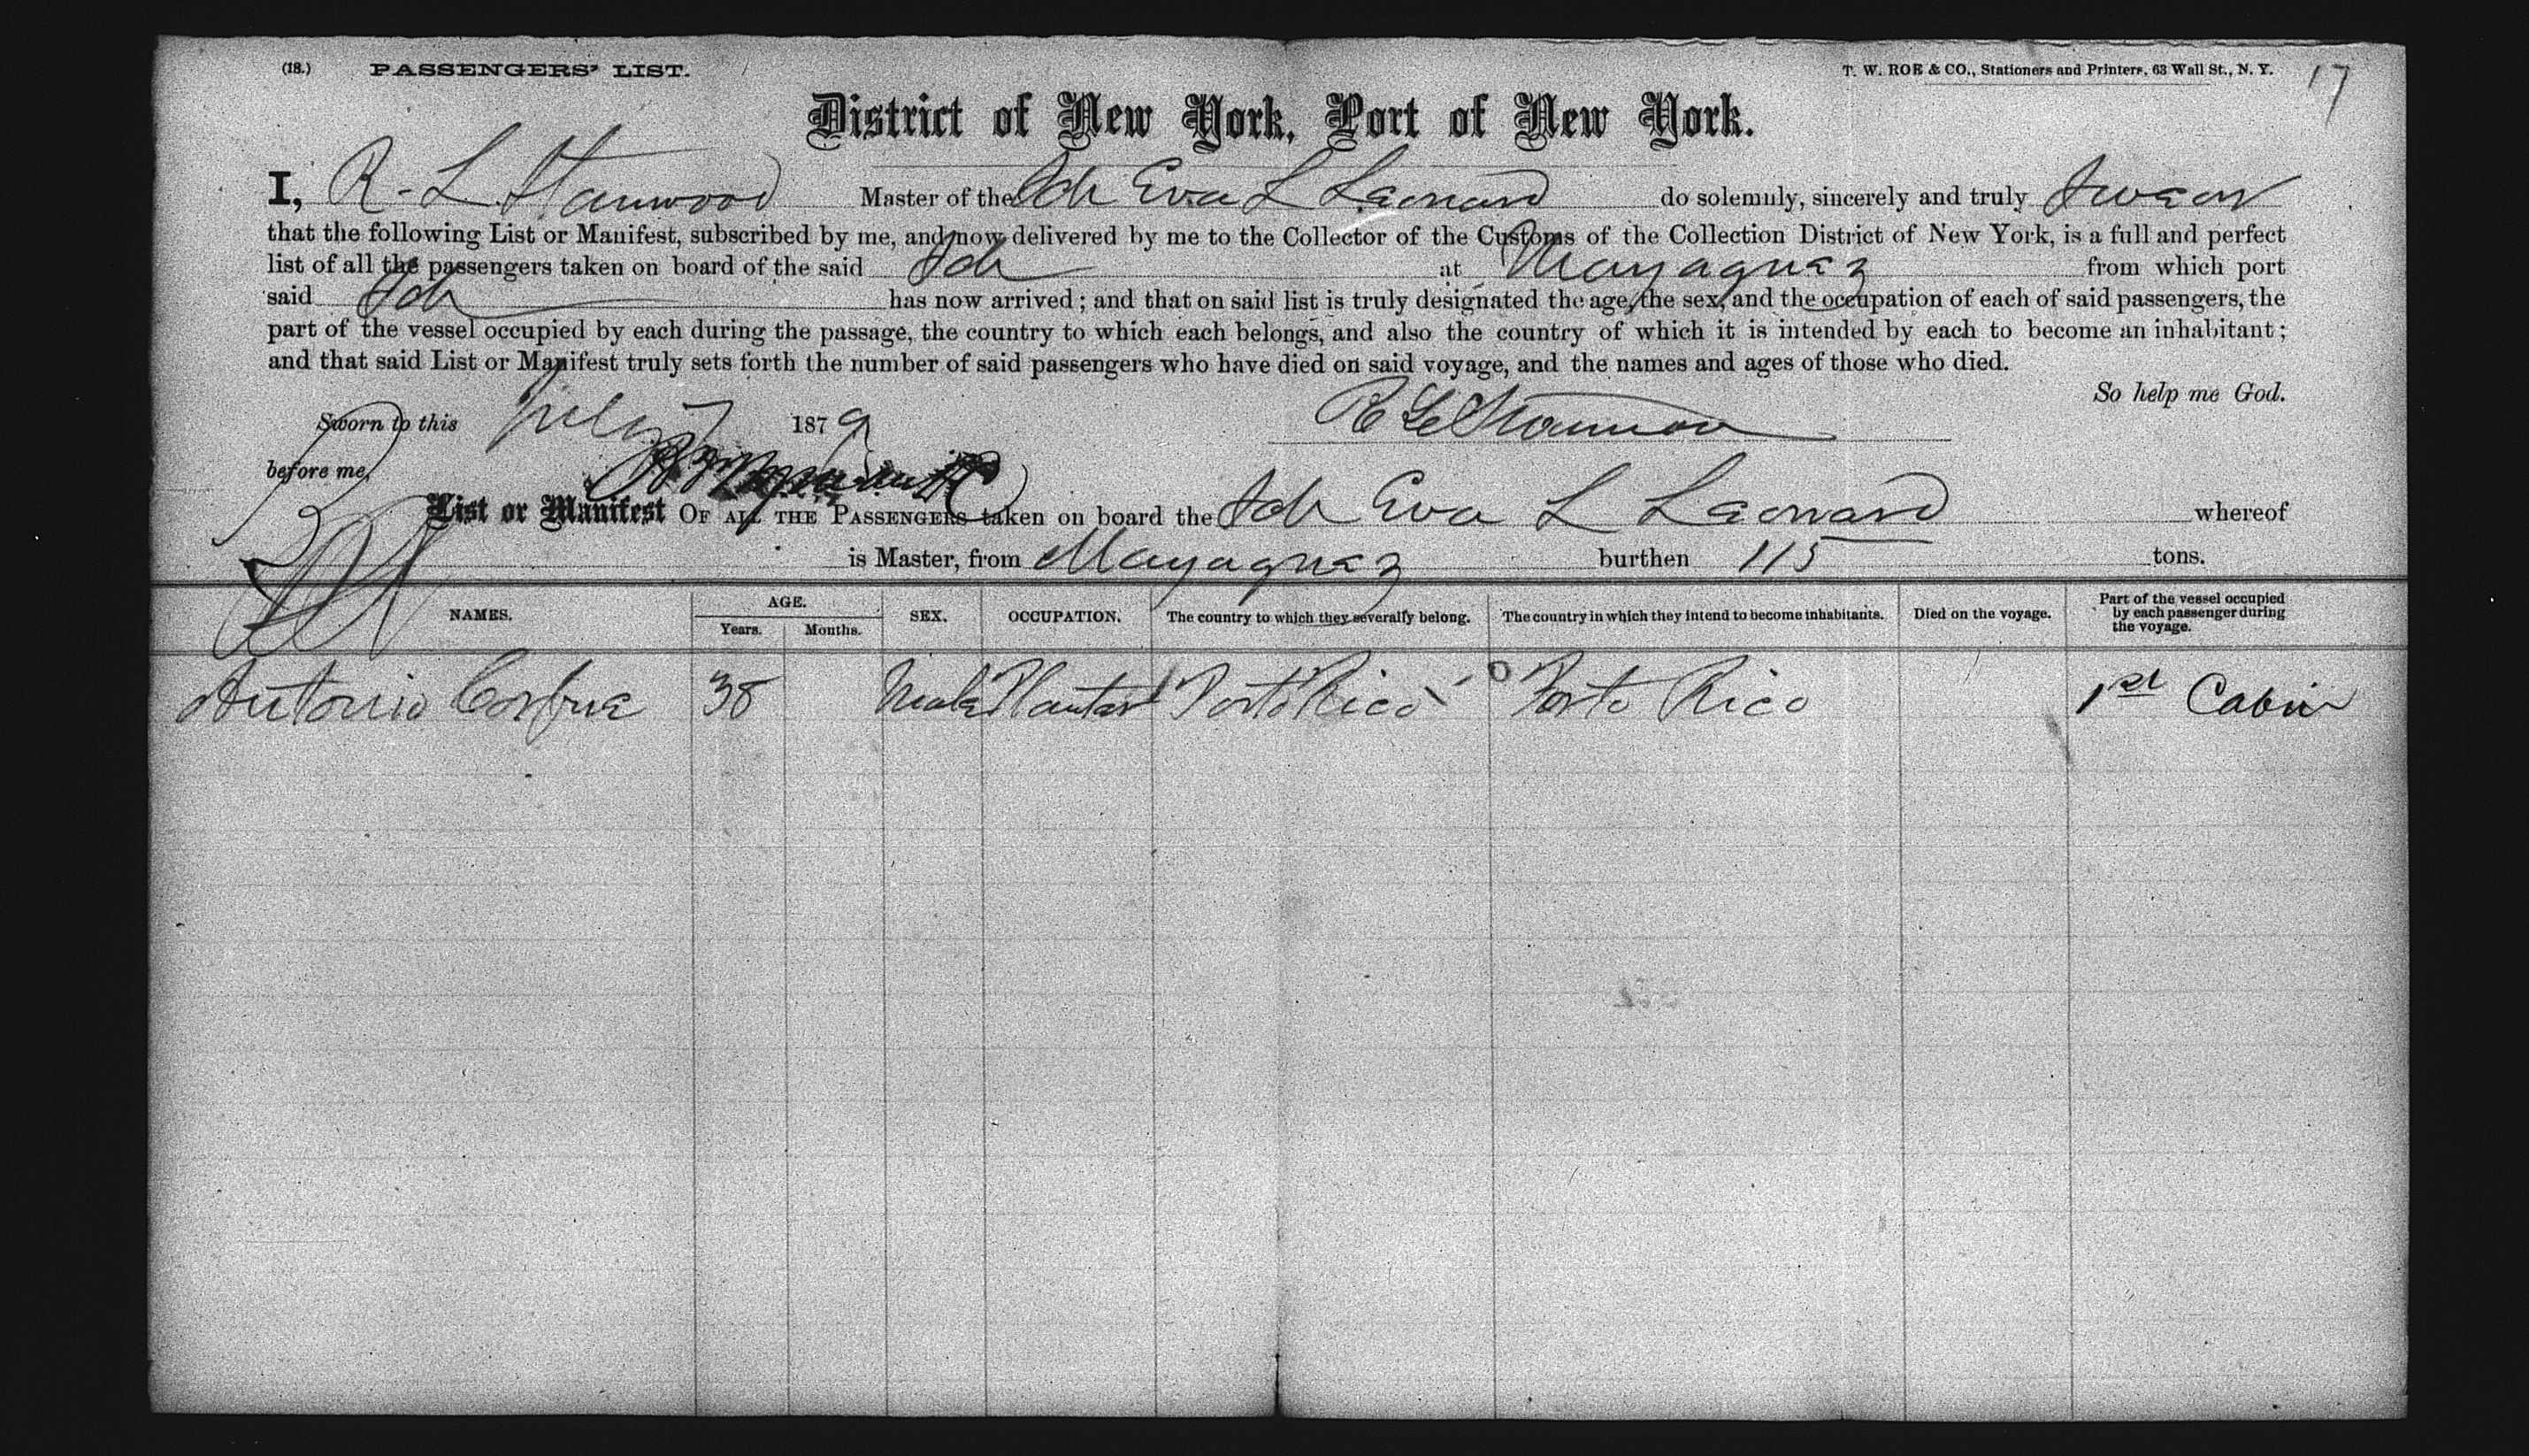 (18.) PASSENGERS' LIST. T. W. ROE & CO., Stationers and Printers, 63 Wall St., N. Y. 17
District of New York, Port of New York.
I, R - L Stanwood Master of the Sch Eva L Leonard do solemnly, sincerely and truly swear
that the following List or Manifest, subscribed by me, and now delivered by me to the Collector of the Customs of the Collection District of New York, is a full and perfect
list of all the passengers taken on board of the said Sch at Mayaguez from which port
said Sch has now arrived; and that on said list is truly designated the age, the sex, and the occupation of each of said passengers, the
part of the vessel occupied by each during the passage, the country to which each belongs, and also the country of which it is intended by each to become an inhabitant;
and that said List or Manifest truly sets forth the number of said passengers who have died on said voyage, and the names and ages of those who died.
So help me God.
Sworn to this July 7 1879 R L Stanwood
before me,
List or Manifest OF ALL THE PASSENGERS taken on board the Sch Eva L Leonard whereof
is Master, from Mayaguez burthen 115 tons.
NAMES. AGE. Years. Months. SEX. OCCUPATION. The country to which they severally belong. The country in which they intend to become inhabitants. Died on the voyage. Part of the vessel occupied by each passenger during the voyage.
Antonio 38 Male Planter Porto Rico Porto Rico 1st Cabin